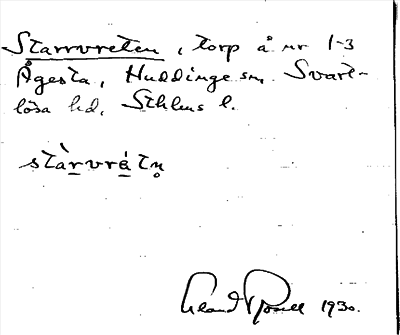 Starrvreten, torp å nr 1-3
Ågesta, Huddinge sn. Svart-
lösa hd, Sthlms l.
stàrvrátn̥
1930.